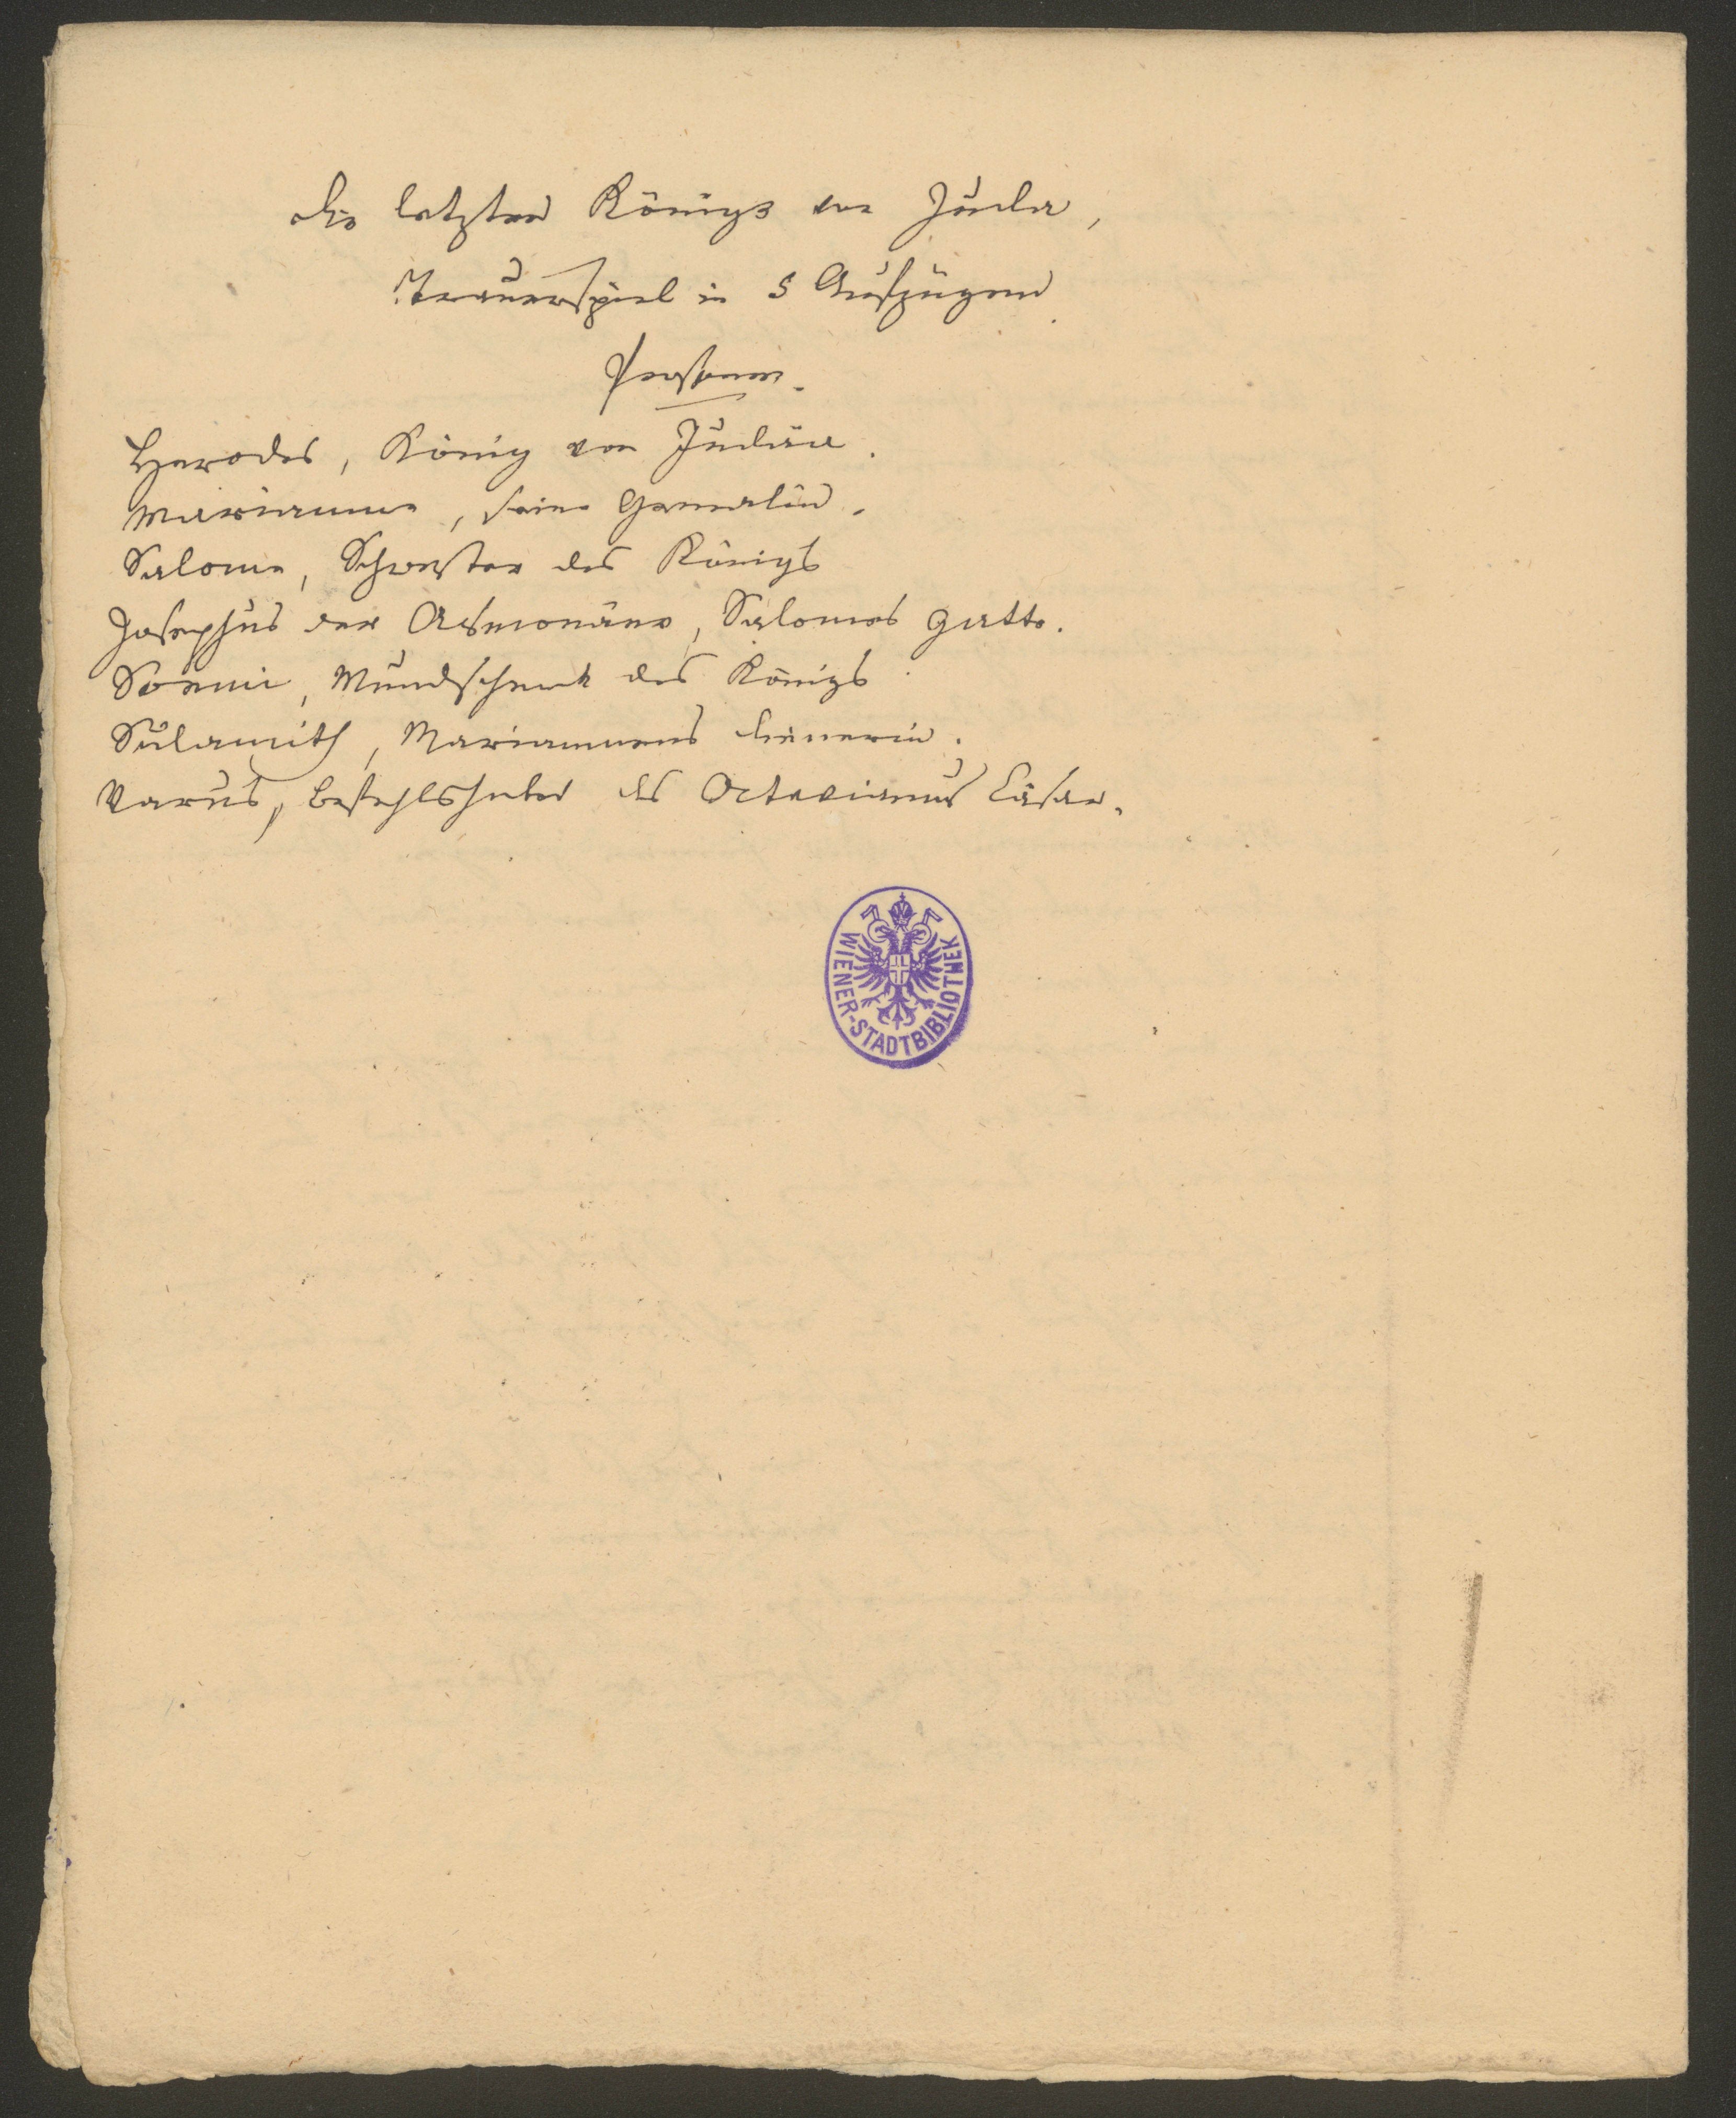 Die letzten Könige von Juda,
Trauerspiel in 5 Aufzügen.
Personen.
Herodes, König von Judäa.
Mariamne, seine Gemalin.
Salome, Schwester des Königs
Josephus der Asmonäer, Salomes Gatte.
Soemi, Mundschenk des Königs
Sulamith, Mariamnens Dienerin.
Varus, Befehlshaber des Octavianus Cäsar.
WIENER-STADTBIBLIOTHEK